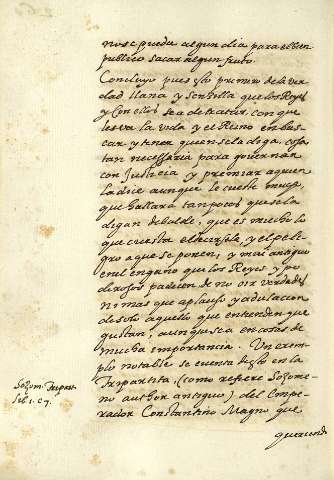 no se pueda algun dia para el bien
publico sacar algun fruto.
Concluyo pues esto primero de la ver
dad llana y senzilla que los Reyes
y con ellos sea de tratar, con que
les va la vida y el Reino en bus
car y tener quien se la diga, cosa
tan necessaria para governar
con Justicia y premiar a quien
la dize aunque le cueste mucho,
que hallara tan pocos que se la
digan de balde, que es mucho lo
que cuesta el dezirsela, y el peli
gro a que se ponen, y mas antiguo
en el engaño que los Reyes y po
derosos padecen de no oir verdades
ni mas que aplauso y adulacion
de solo aquello que entienden que
gustan, aunque sea en cosas de
mucha importancia. Un exem
plo notable se cuenta desto en la
Tripartita, (como refiere Sozome
no author antiguo) del Empe
rador Constantino Magno que
queriendo
Sozom. Tripart.
lib. 1. c. 7.